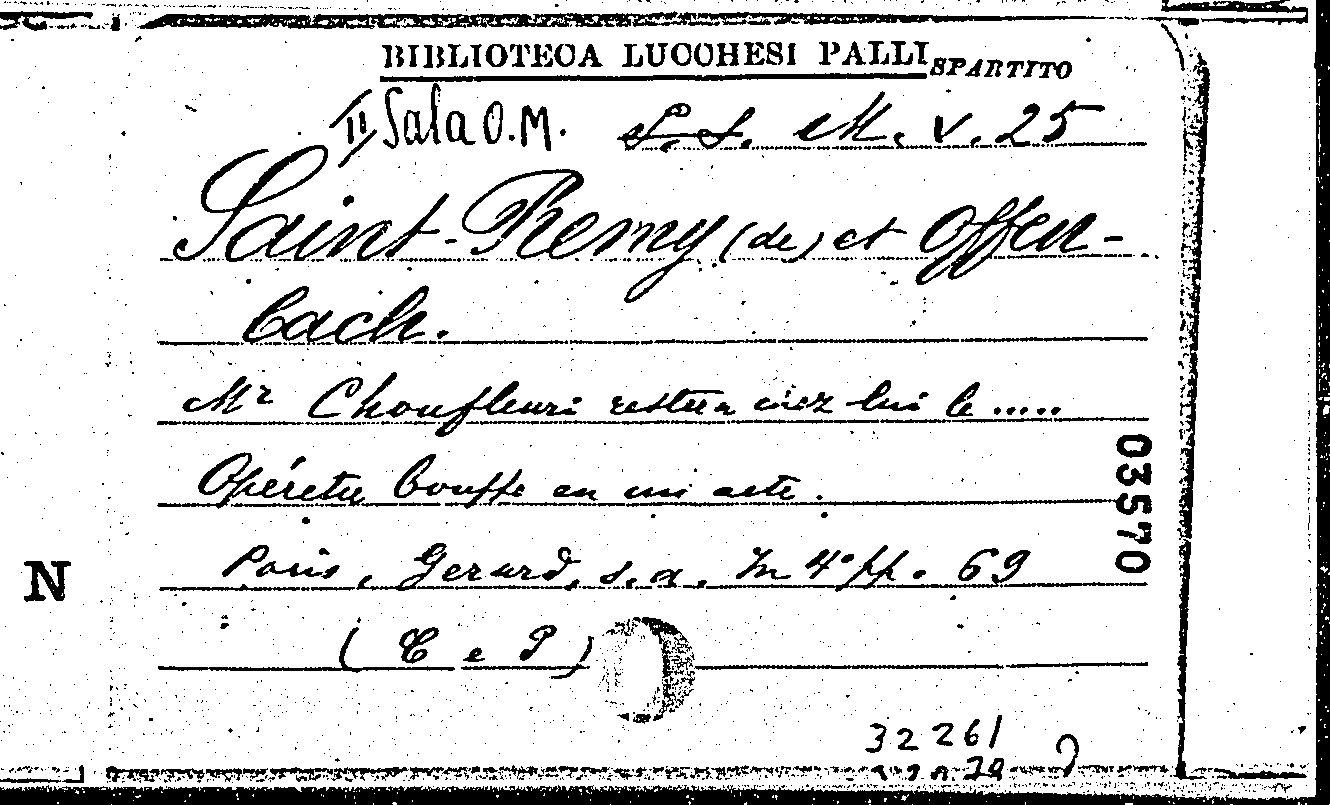 BIBLIOTECA LUCCHESI PALLI SPARTITO
II Sala O.M. S.S. M. V. 25
Saint-Remy (de) et Offen-
bach.
Mr Choufleuri restera chez lui le .....
Opérette bouffe en un acte.
Paris, Gerard, s.a. In 4° pp. 69
(C e P)
03570
N
32261